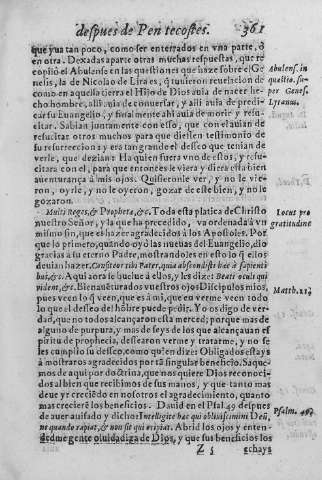 despues de Pentecostes. 361
que yua tan poco, como ser enterrados en vna parte, ó
en otra. Dexadas aparte otras muchas respuestas, que re
copiló el Abulense en las questiones que haze sobre el Ge
nesis, la de Nicolao de Lira es, q̃ tuuieron reuelacion de
como en aquella tierra el Hijo de Dios auia de nacer he-
cho hombre, alli auia de conuersar, y alli auia de predi-
car su Euangelio, y finalmente ahi auia de morir y resu-
citar. Sabian juntamente con esso, que con el auian de
resucitar otros muchos para que diessen testimonio de
su resurreccion: y era tan grande el desseo que tenian de
verle, que dezian: Ha quien fuera vno de estos, y resu-
citara con el, para que entonces le viera y diera essa bien
auenturança à mis ojos. Quisieronle ver, y no le vie-
ron, oyrle, y no le oyeron, gozar de este bien, y no le
gozaron.
Abulens. in
questio. su-
per Genes.
Lyranus.
Multi Reges, & Prophetæ, &c. Toda esta platica de Christo
nuestro Señor, y la que ha precedido, va ordenada à vn
mismo fin, que es hazer agradecidos à los Apostoles. Por
que lo primero, quando oyó las nueuas del Euangelio, dio
gracias a su eterno Padre, mostrandoles en esto lo q̃ ellos
deuian hazer. Confiteor tibi Pater, quia abscondisti hæc à sapienti
bus, &c. A qui aora se buelue à ellos, y les dize: Beati oculi qui
vident, &c. Bienauẽturados vuestros ojos Discipulos mios,
pues veen lo q̃ veen, que es à mi, que en verme veen todo
lo que el desseo del hõbre puede pedir. Yo os digo de ver-
dad, que no todos alcançaron esta merced; porque mas de
alguno de purpura, y mas de seys de los que alcançauan es
piritu de prophecia, dessearon verme y tratarme, y no se
les cumplio su desseo, como quien dize: Obligados estays
à mostraros agradecidos por tã singular beneficio. Saque-
mos de aqui por doctrina, que nos quiere Dios reconoci-
dos al bien que recibimos de sus manos, y que tanto mas
deue yr creciẽdo en nosotros el agradecimiento, quanto
mas creciere los beneficios. Dauid en el Psal. 49 despues
de auer auisado y dicho: Intelligite hæc qui obliuiscimini Deũ,
ne quando rapiat, & non sit qui eripiat. Abrid los ojos y enten-
ded mente oluidadiza de Dios, y que sus beneficios los
Locus pro
gratitudine
Matth. 11.
Psalm. 49.
Z 5 echays